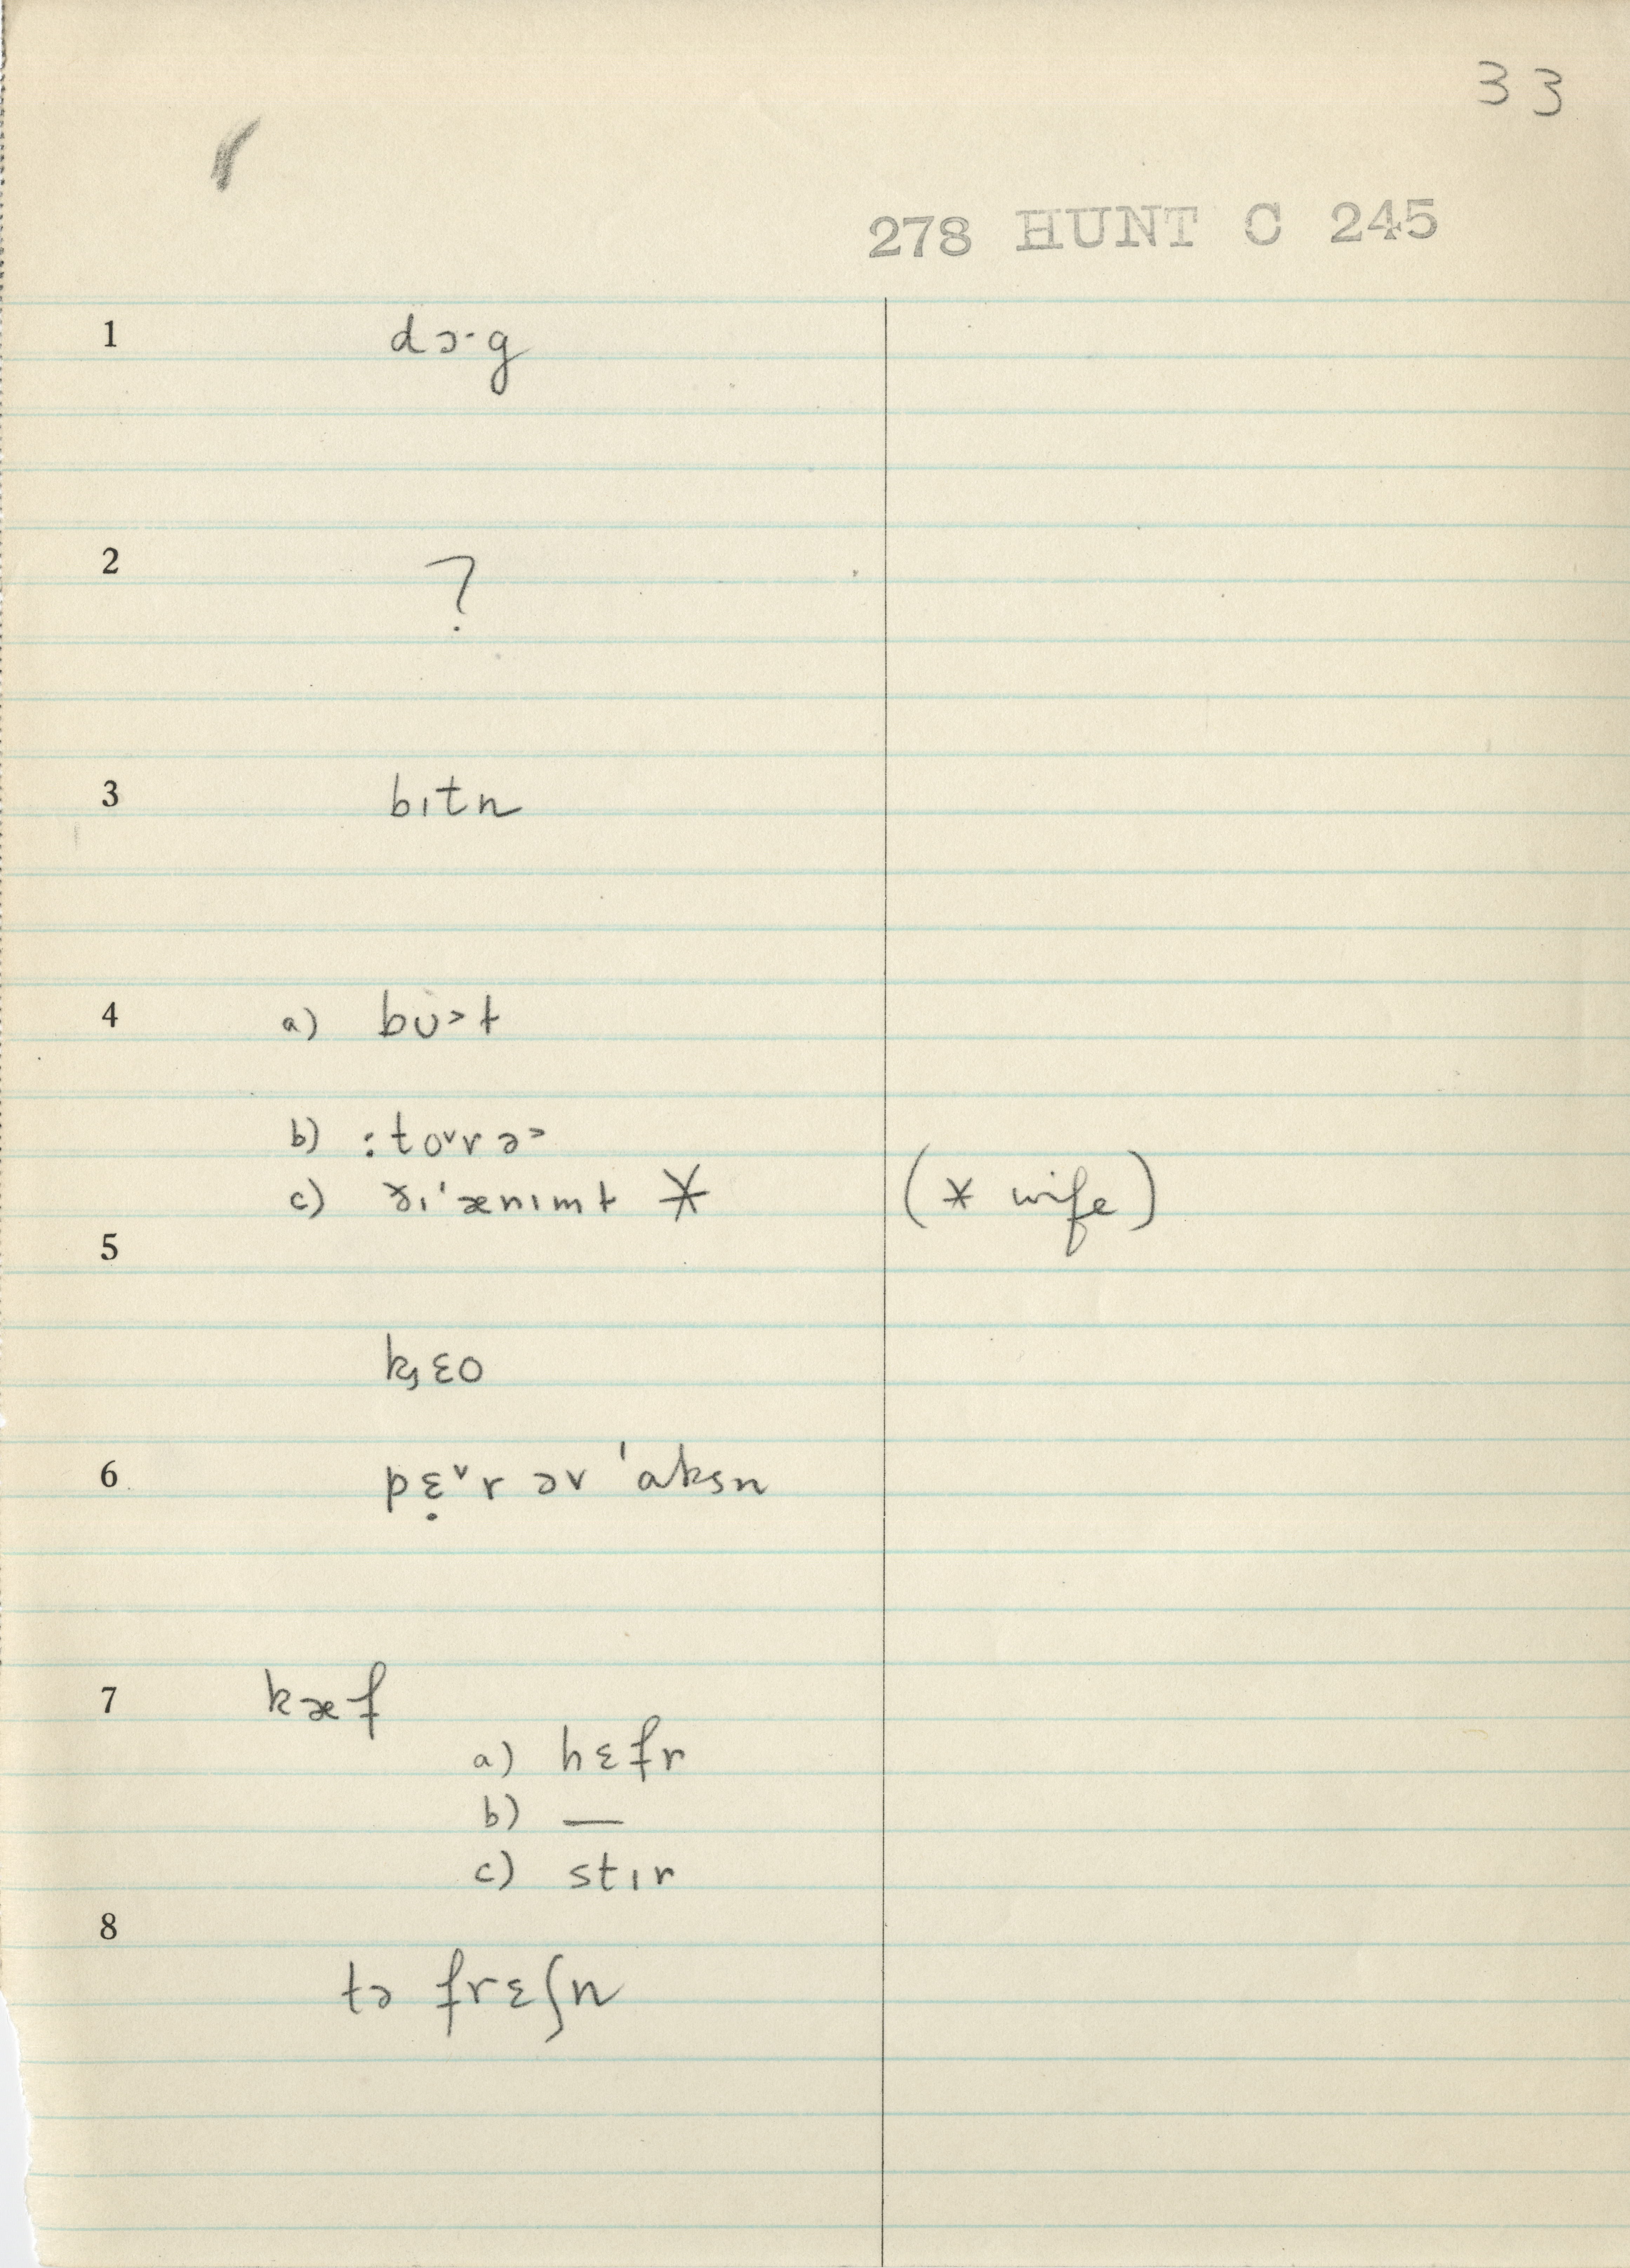 33
278 HUNT C 245
1 dɔ·g
2 ?
3 bɪtn
4 a) bʊ˃ɫ
b) :to˅r ə˃
c) ðɪ'ænɪmɫ * (* wife)
5
kᶚɛo
6 pɛ̣˅r əv 'aksn
7 kæf
a) hɛfr
b) —
c) stɪr
8
tə frɛʃn